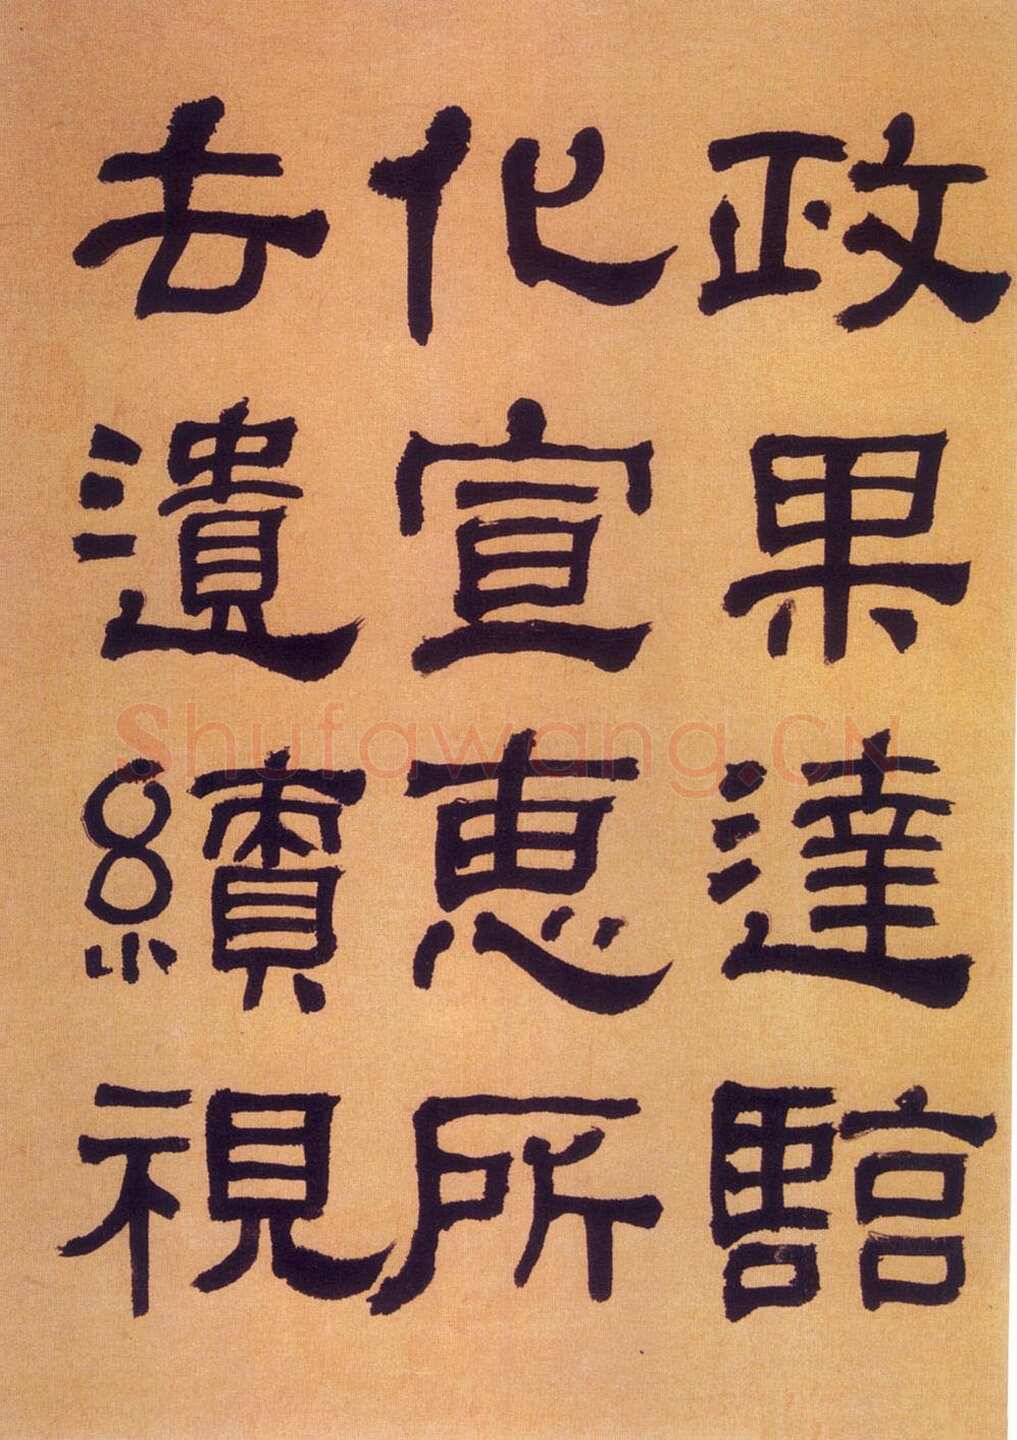 政果達臨
化宣惠所
去遺繢視
Shufawang.CN